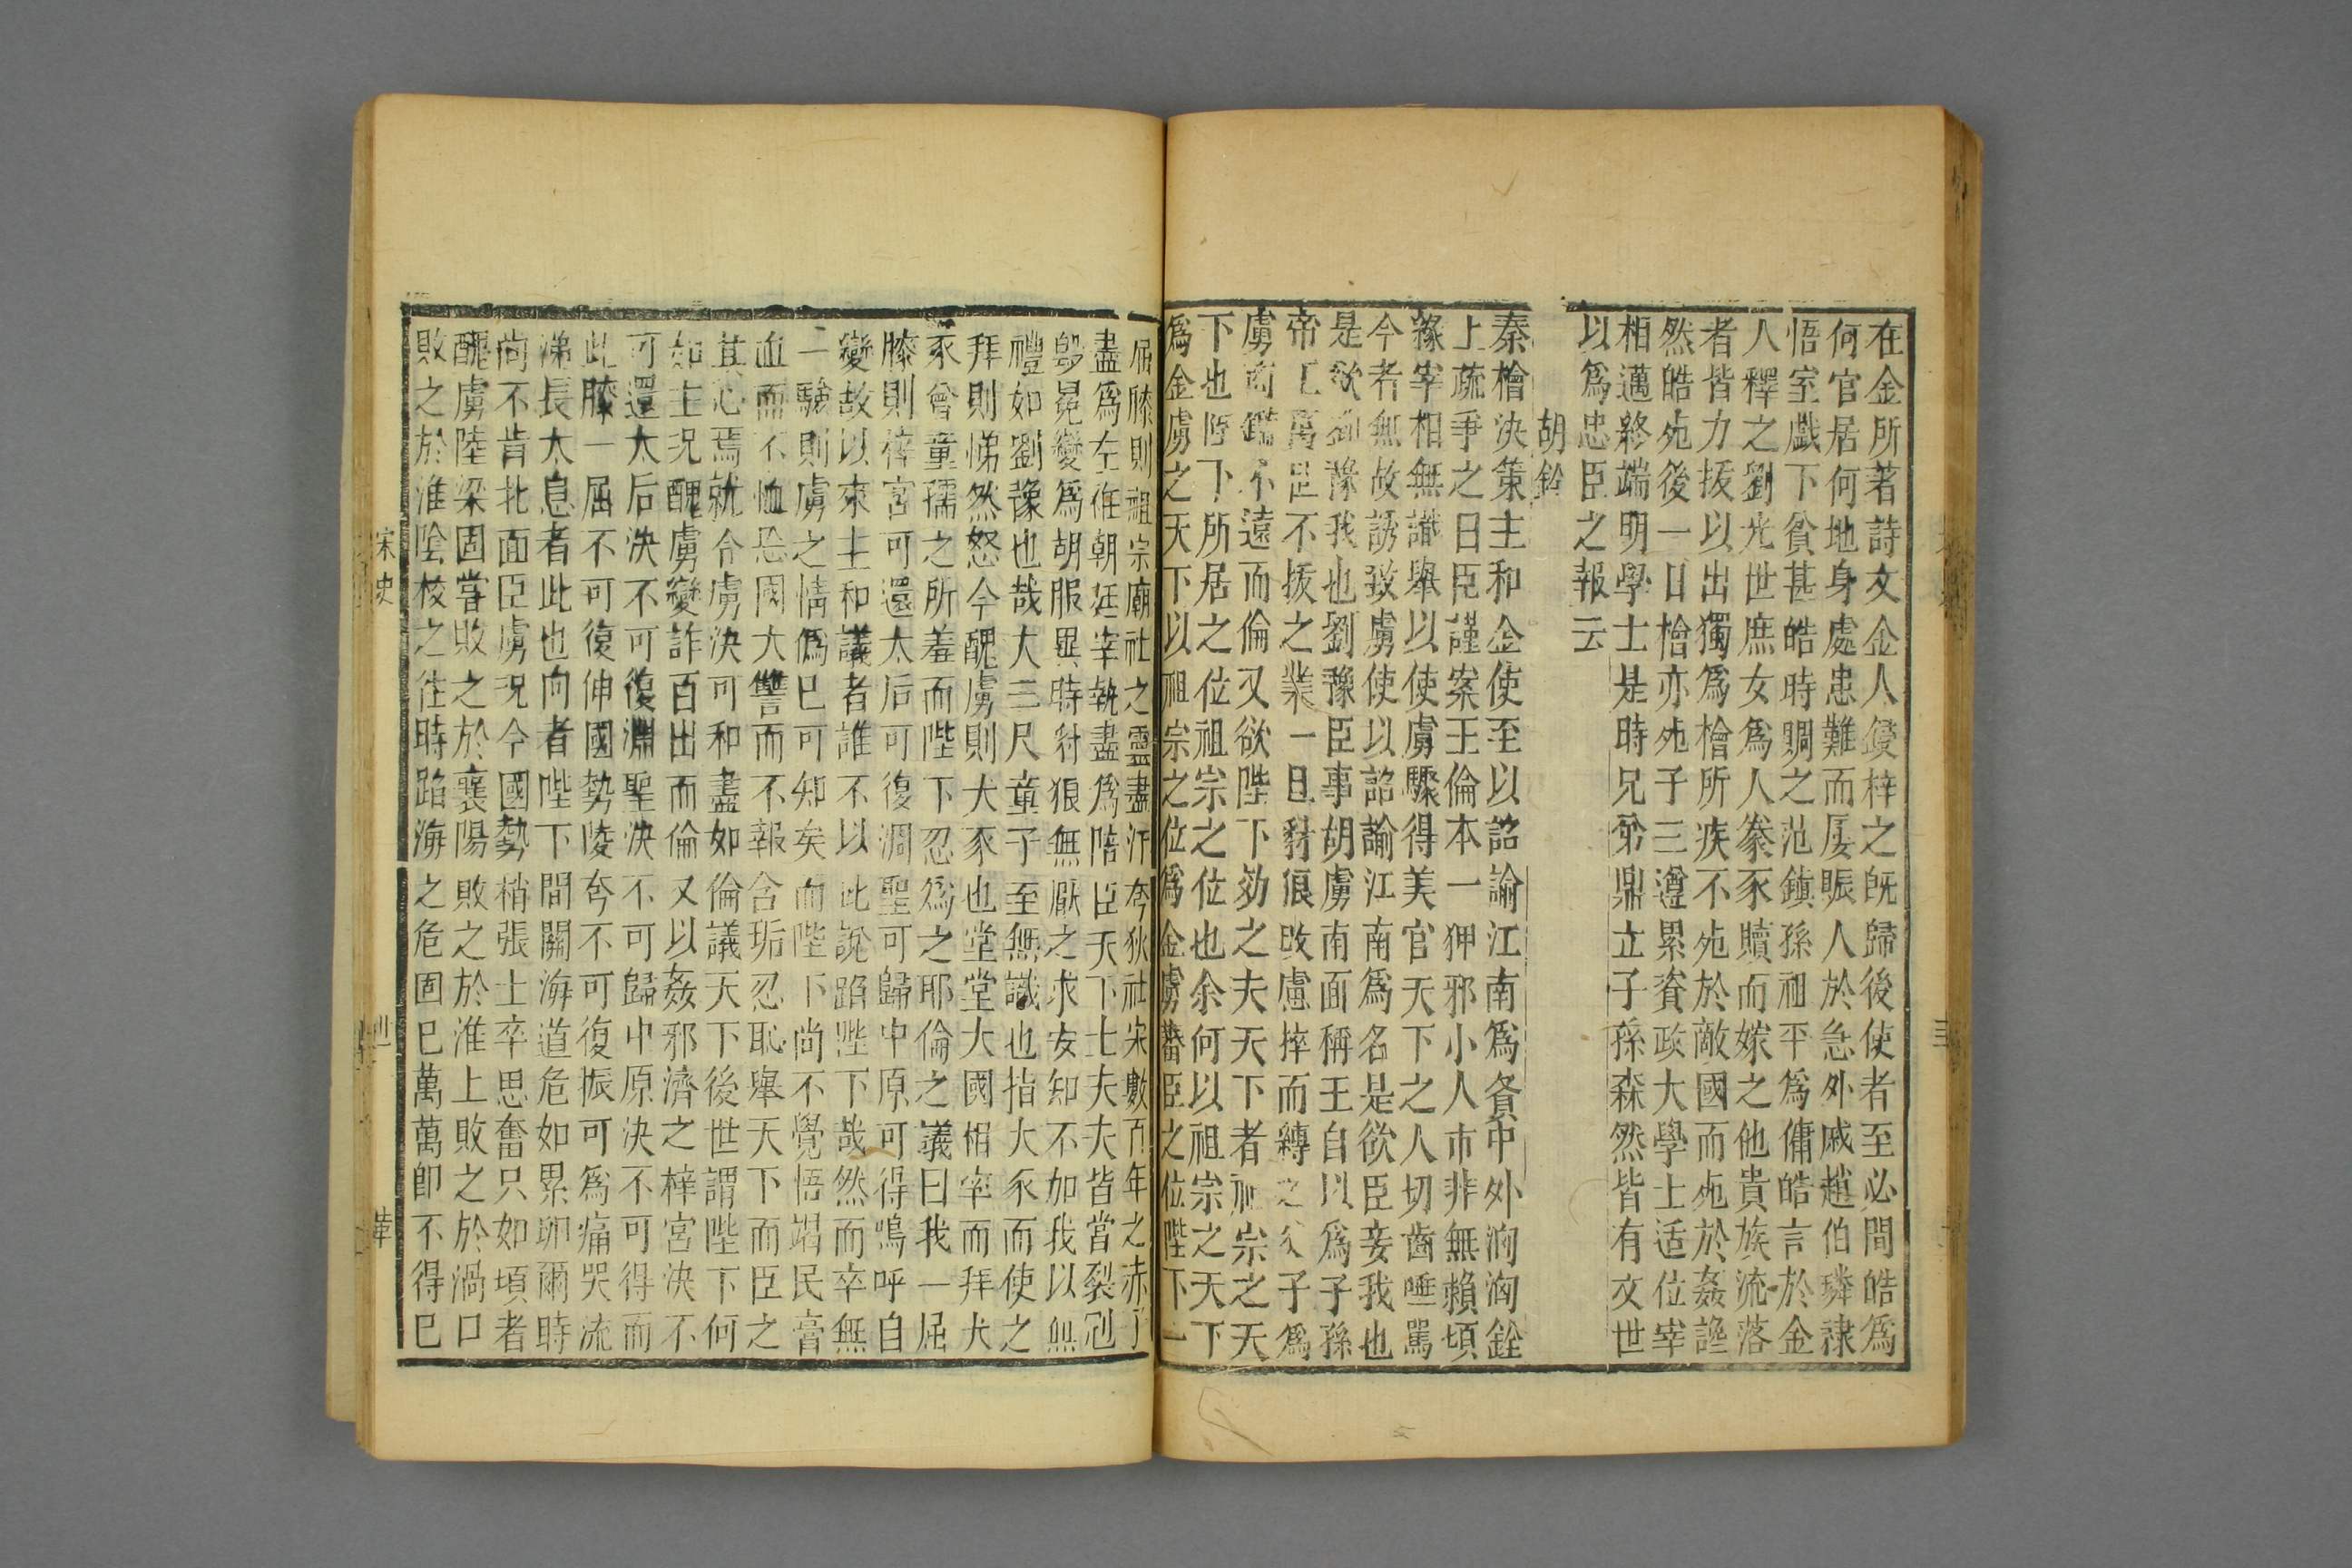 在金所著詩文金人鋟梓之旣歸後使者至必間皓爲
何官居何地身處患難而屡賑人於急外戚趙伯璘隷
悟室戲下貧甚皓時賙之范鎮孫祖平爲傭皓言於金
人釋之劉光世庶女爲人豢豕贖而嫁之他貴族流落
者皆力拔以出獨爲檜所疾不死於敵國而死於姦讒
然皓死後一日檜亦死子三遵累資政大學士适位宰
相邁終端明學士是時兄弟鼎立子孫森然皆有文世
以爲忠臣之報云
胡銓
秦檜决策主和金使至以詔諭江南爲名中外洶洶銓
上疏爭之曰臣謹案王倫本一狎邪小人市井無賴頃
緣宰相無識舉以使虜驟得美官天下之人切齒唾罵
今者無故誘致虜使以詔諭江南爲名是欲臣妾我也
是欲劉豫我也劉豫臣事胡虜南面稱王自以爲子孫
帝王萬世不拔之業一旦豺狼改慮捽而縛之父子爲
虜商鑑不遠而倫又欲陛下効之夫天下者祖宗之天
下也陛下所居之位祖宗之位也奈何以祖宗之天下
爲金虜之天下以祖宗之位爲金虜藩臣之位陛下一
屈膝則祖宗廟社之靈盡汙夸狄社宋數百年之赤子
盡爲左衽朝廷宰執盡爲陪臣天下士夫夫皆當裂冠
毁冕變爲胡服異時豺狼無厭之求安知不加我以無
禮如劉豫也哉夫三尺童子至無識也指犬豕而使之
拜則怫然怒今醜虜則犬豕也堂堂大國相率而拜犬
豕曾童孺之所羞而陛下忍爲之耶倫之議曰我一屈
膝則梓宮可還太后可復淵聖可歸中原可得嗚呼自
變故以來主和議者誰不以此說㗖陛下哉然而卒無
一驗則虜之情僞已可知矣而陛下尚不覺悟竭民膏
血而不恤忘國大讐而不報含垢忍恥舉天下而臣之
甘心焉就令虜决可和盡如倫議天下後世謂陛下何
如主况醜虜變詐百出而倫又以姦邪濟之梓宮决不
可還太后决不可復淵聖决不可歸中原决不可得而
此膝一屈不可復伸國勢陵夸不可復振可爲痛哭流
涕長太息者此也向者陛下間關海道危如累卵爾時
尚不肯北面臣虜况今國勢稍張士卒思奮只如頃者
醜虜陸梁固嘗敗之於襄陽敗之於淮上敗之於渦口
敗之於淮陰校之往時蹈海之危固巳萬萬卽不得巳
宋史